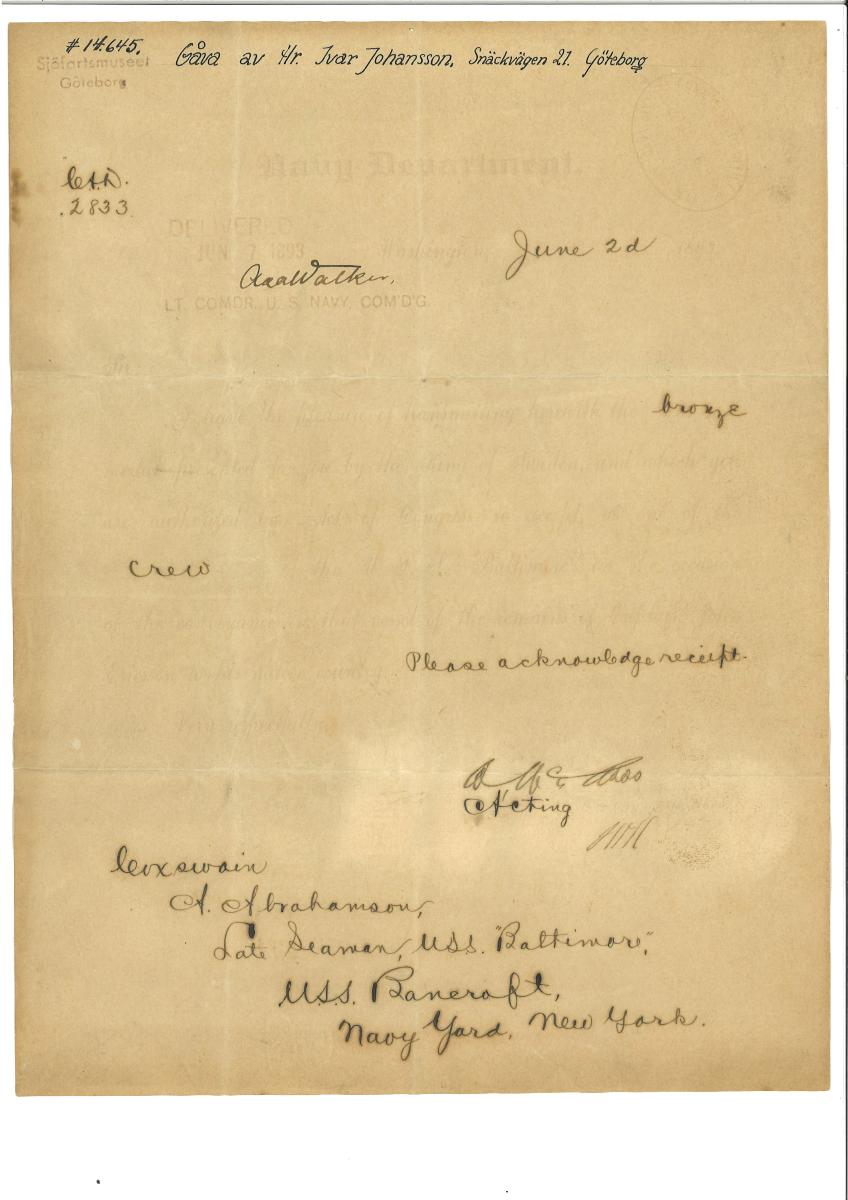 # 14.645. Gåva av Hr. Ivar Johansson, Snäckvägen 21. Göteborg
Sjöfartsmuseet
Göteborg
Navy Department.
2833
DELIVERED
JUN 7 1893
Washington, June 2d
Walker,
LT. COMDR. U. S. NAVY, COM'D'G.
Sir:
I have the pleasure of transmitting herewith the bronze
medal presented to you by the King of Sweden, and which you
are authorized by Act of Congress to accept, as one of the
crew of the U.S.S. "Baltimore" on the occasion
of the conveyance in that vessel of the remains of Captain John
Ericsson to his native country.
Please acknowledge receipt.
Very respectfully,
Acting
Coxswain
A. Abrahamson,
Late Seaman, U.S.S. "Baltimore",
U.S.S. Bancroft,
Navy Yard, New York.